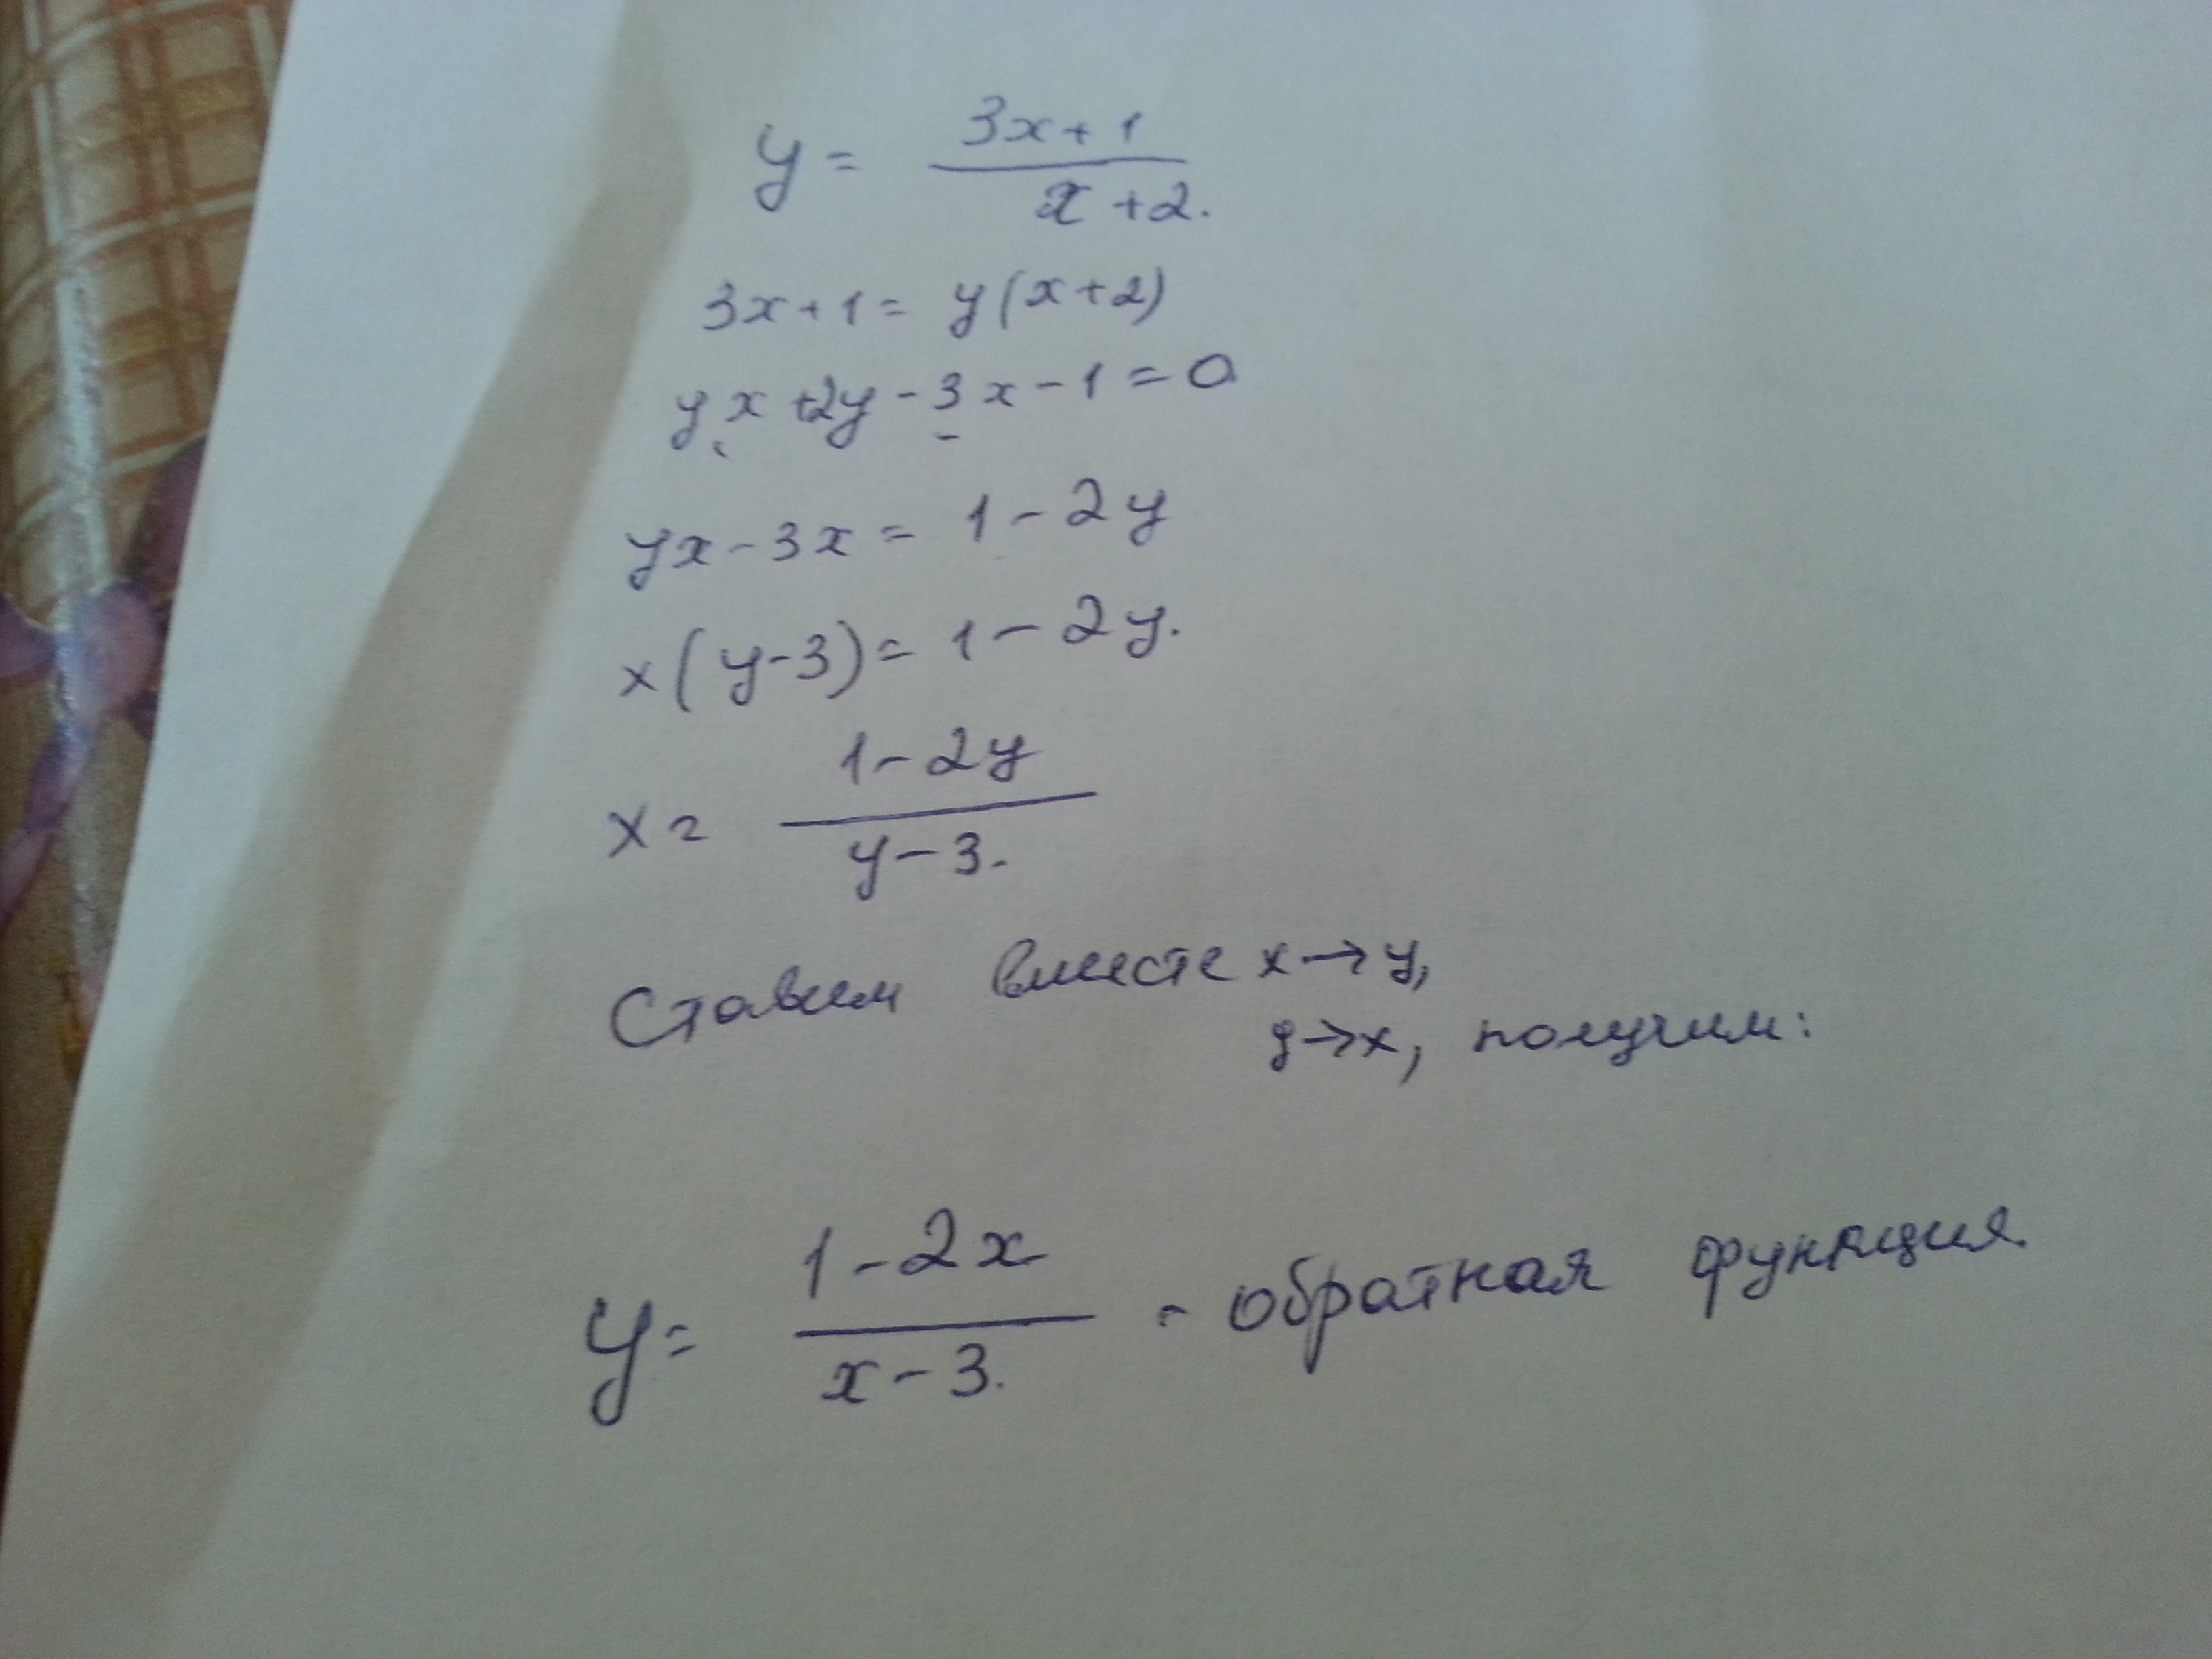 y = (3x+1)/(x+2).
3x+1 = y(x+2)
yx+2y-3x-1=0
yx-3x = 1-2y
x(y-3) = 1-2y.
x = (1-2y)/(y-3).
Ставим вместе x→y,
y→x, получим:
y = (1-2x)/(x-3). - обратная функция